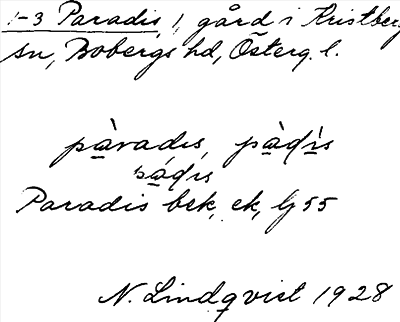 1-3 Paradis, 1, gård i Kristberg
sn, Bobergs hd, Österg. l.
pàradis, pàdìs
pádis
Paradis bek, ek, lj 55
N. Lindqvist 1928